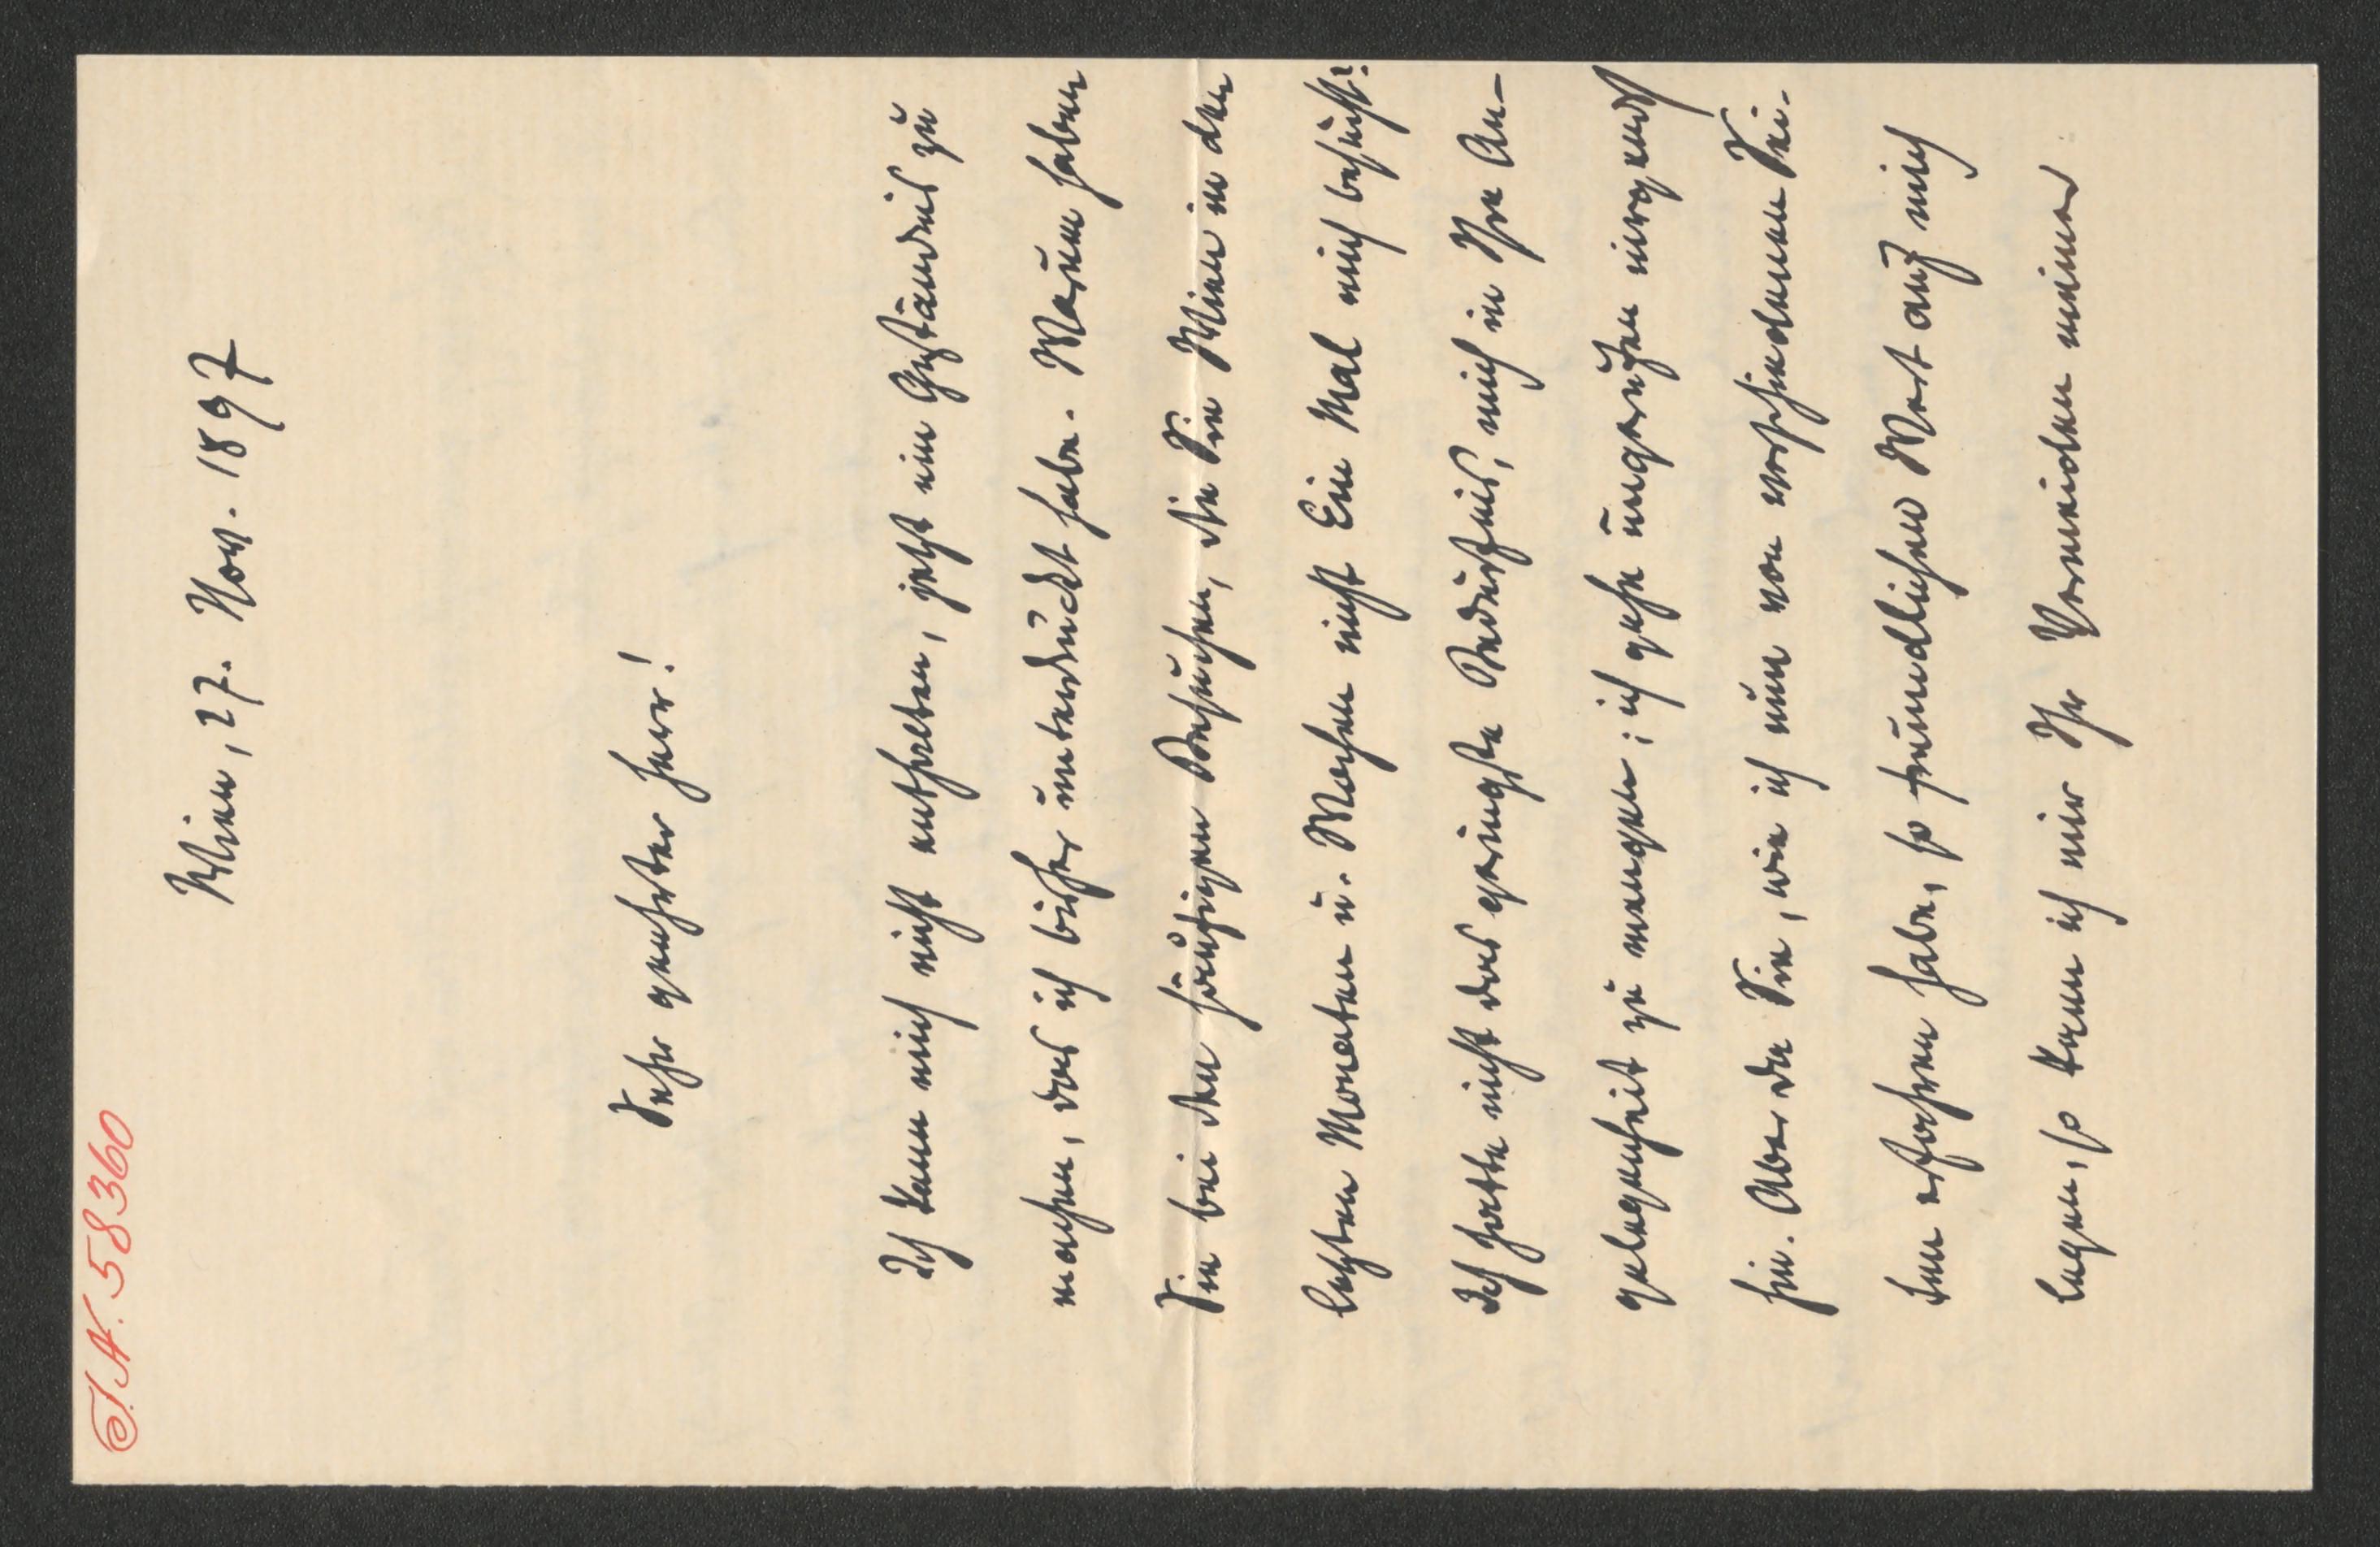 I.N. 58360
Wien, 27. Nov. 1897
Sehr geehrter Herr!
Ich kann mich nicht enthalten, jetzt ein Geständnis zu
machen, das ich bisher unterdrückt habe. Warum haben
Sie bei den häufigen Besuchen, die Sie Wien in den
letzten Monaten u. Wochen nicht Ein Mal mich besucht?
Ich hatte nicht das geringste Bedürfnis, mich in Ihre An-
gelegenheit zu mengen; ich gehe ungerufen nirgends
hin. Aber da Sie, wie ich nun von verschiedenen Sei-
ten erfahren habe, so freundlichen Wert auf mich
legen, so kann ich mir Ihr Vermeiden meiner